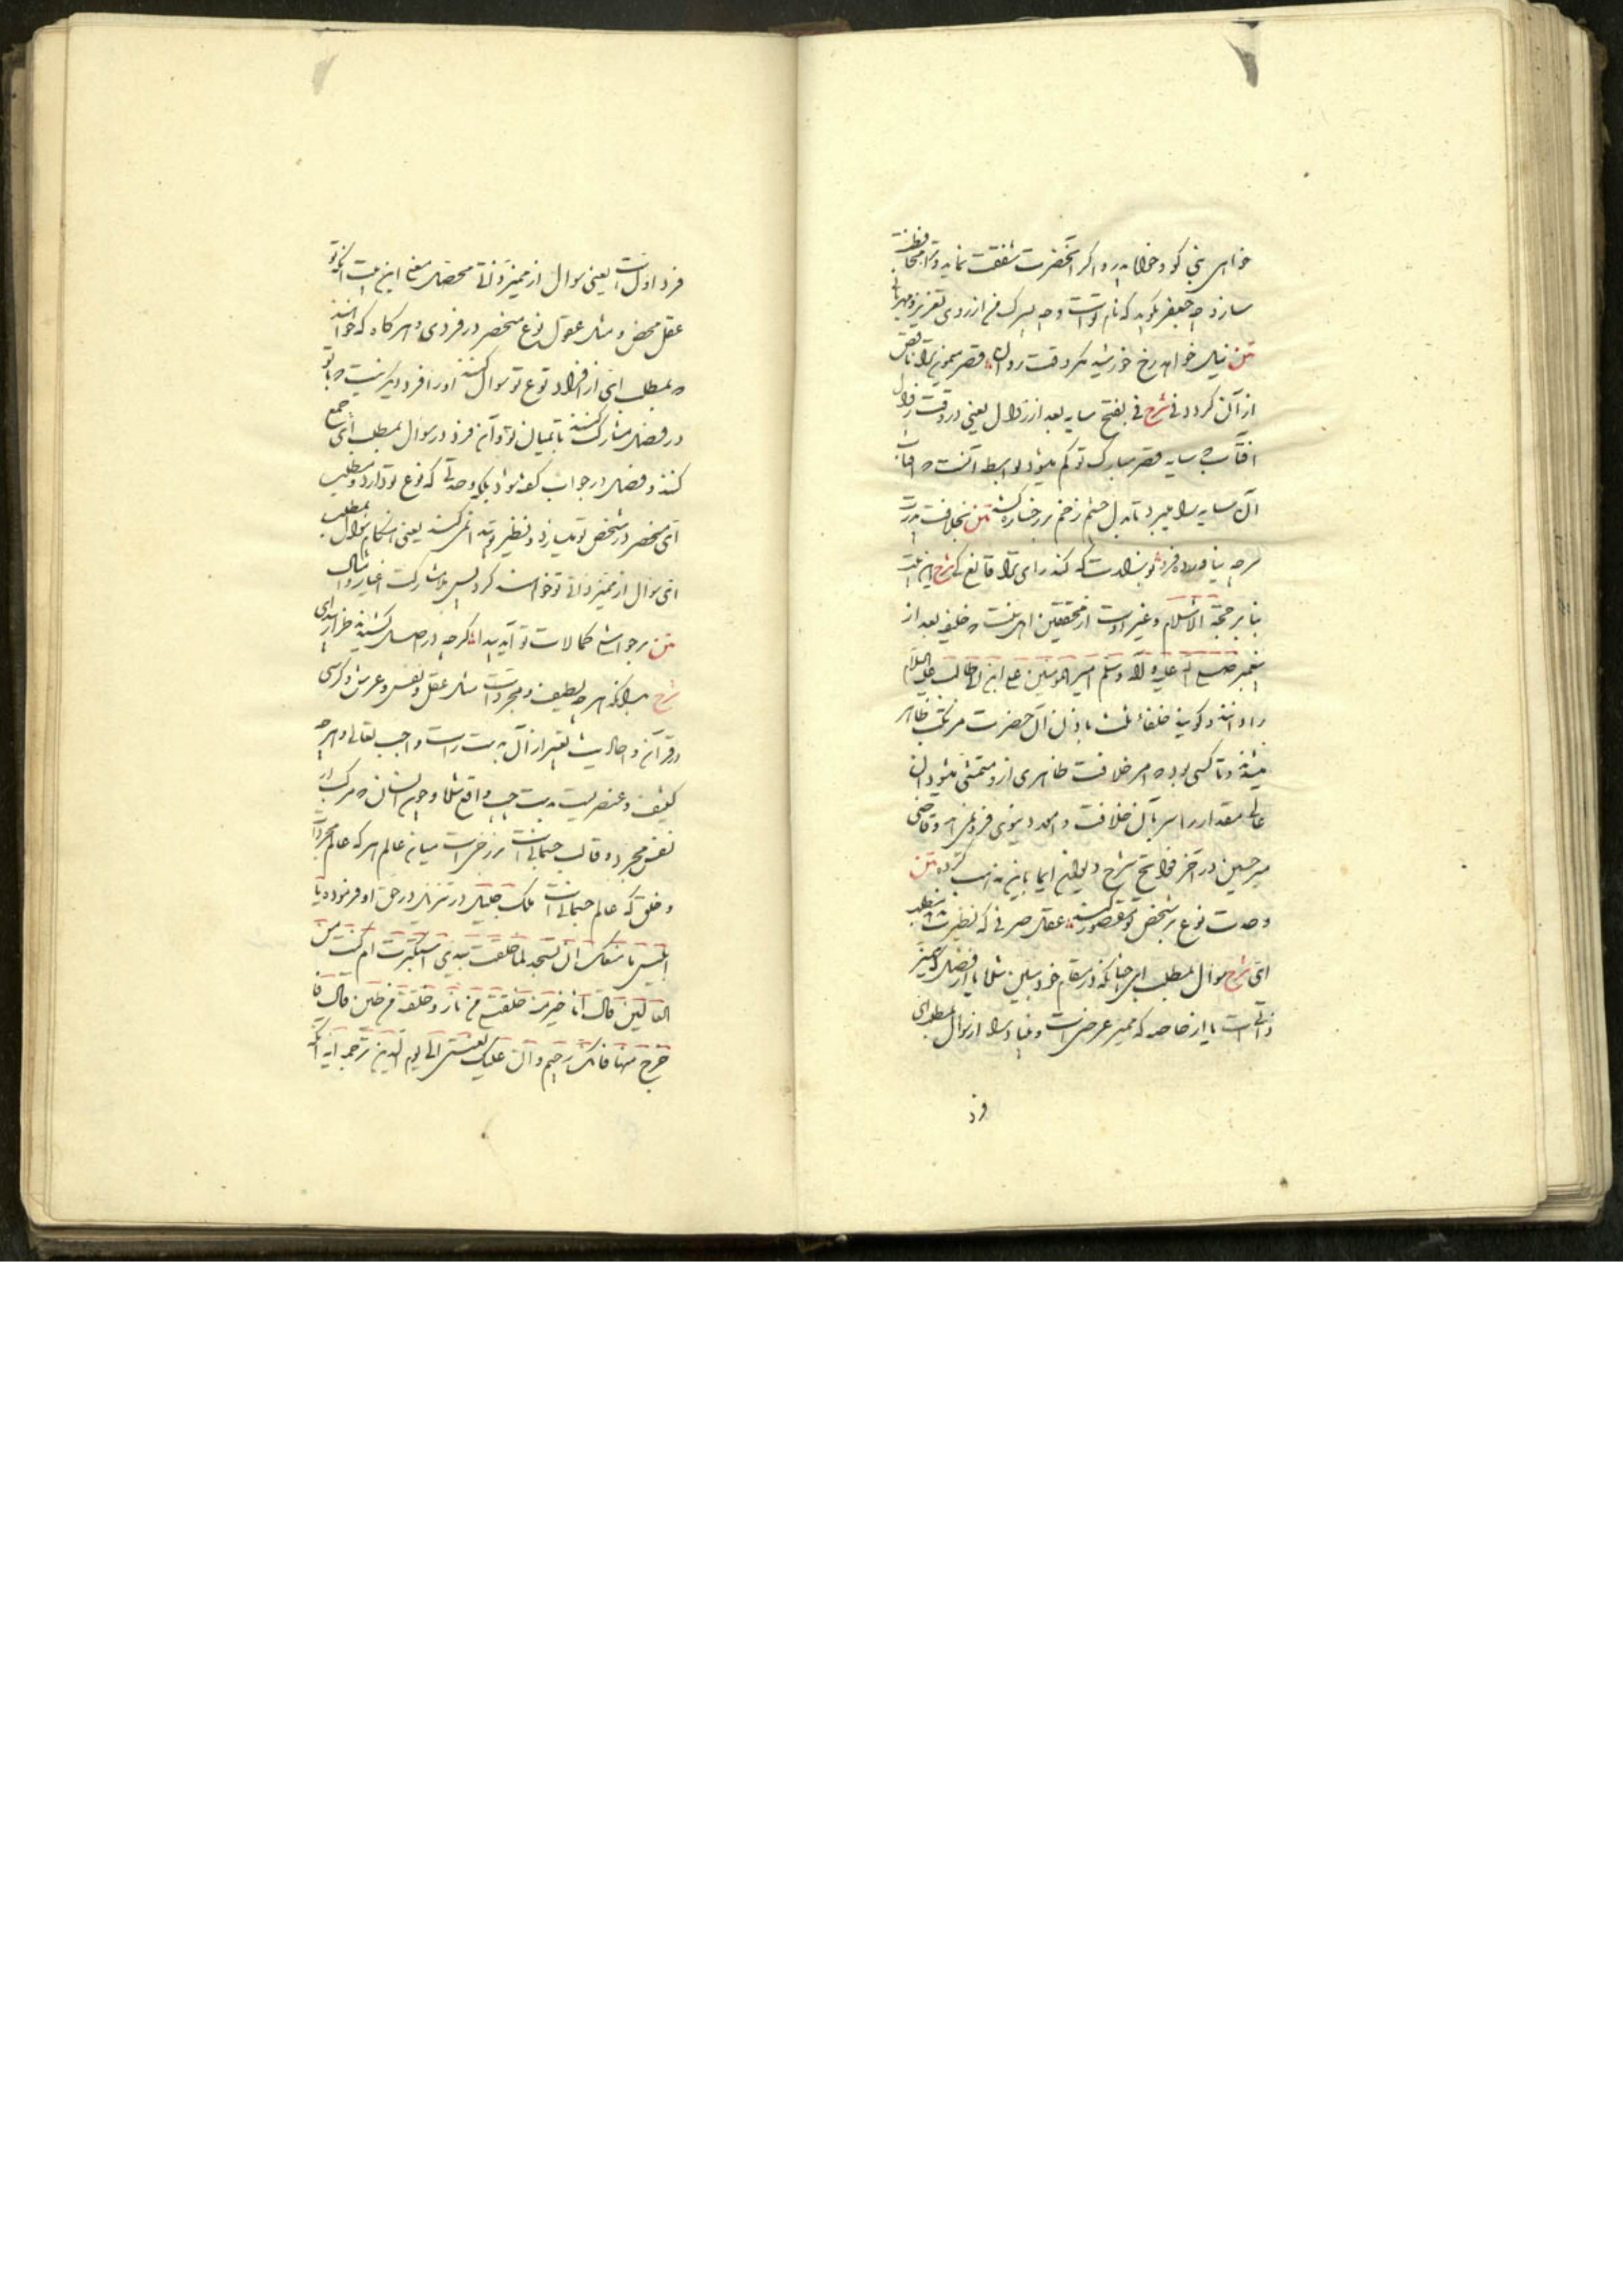 خواهی بنی کود و خواه پدر و اگر آنحضرت شفقت نماید و ترا محافظت
سازد چه جعفر بگوید که نام تو است و چه پسرک من از روی تعزیز و مهربانی
متن نیل خواهد رخ خورشید مگر وقت زوال قصر میمون ترا ناقص
از آن کرد فی شرح فی بفتح سایه بعد از زوال یعنی در وقت زوال
آفتاب که سایه قصر مبارک تو کم میشود بواسطه آنست که آفتاب
آن سایه را میبرد تا بدل چشم زخم بر رخساره کشد متن بخلافت پدرت
گرچه نیاورده فرو سر که کند رای ترا قانع کی شرح این بیت
بنا بر حجة الاسلام و غیر اوست از محققین اهل سنت که خلیفه بعد از
پیغمبر صلی الله علیه و آله و سلم امیر المؤمنین علی ابن ابی طالب علیه السلام
را دانند و گویند خلفاء ثلث باذن آن حضرت مرتکب ظاهر
میشدند و تا کسی بود که امر خلافت ظاهری ازو متمشی میشود آن
عالی مقدار را سر بآن خلافت و امور دنیوی فرو نمی آمد و قاضی
میر حسین در آخر فواتح شرح دیوان ایما باین مذهب کرده متن
وحدت نوع بر شخص تو مقصور کند عقل صرفی که نظیرت بمطلب
ای شرح سوال بمطلب ای چنانکه در مقام خود مبین شد یا از فصل که ممیز
ذاتی است یا از خاصه که ممیز عرضی است و مراد از سوال بمطلب ای
فرد
فرد اول است یعنی سوال از ممیز ذاتی محصل معنی این بیت آنکه تو
عقل محض و مثل عقول نوع منحصر در فردی و هر کاه که خواهند
که بمطلب ای از افراد نوع تو سوال کنند او را فرد دیگر نیست که با تو
در فصل مشارکت کند تا میان تو و آن فرد در سوال بمطلب ای جمع
کنند و فصل در جواب گفته شود بلکه وحدتی که نوع تو دارد و مطلب
ای منحصر در شخص تو میسازد و نظیر تو پیدا نمی کند یعنی هنگام سوال بمطلب
ای سوال از ممیز ذاتی تو خواهند کرد پس مشارکت اغیار و امثال
متن بر حواشی کمالات تو آید پیدا گرچه در اصل کشیدند طراز
شرح بدانکه هر چه لطیف و مجرد است مثل عقل و نفس و عرش و کرسی
در قرآن و احادیث تعبیر از آن به دست راست واجب تعالی و هر چه
کثیف و عنصریست بدست چپ واقع شده و چون انسان که مرکب از
نفس مجرد و قالب جسمانی است برزخی است میان عالم امر که عالم مجردات
و خلق که عالم جسمانی است ملک جلیل در تنزیل در حق او فرموده یا
ابلیس ما منعک ان تسجد لما خلقت بیدی استکبرت ام کنت من
العالین قال انا خیر منه خلقتنی من نار و خلقته من طین قال فا
خرج منها فانک رجیم و ان علیک لعنتی الی یوم الدین ترجمه آیه آنکه